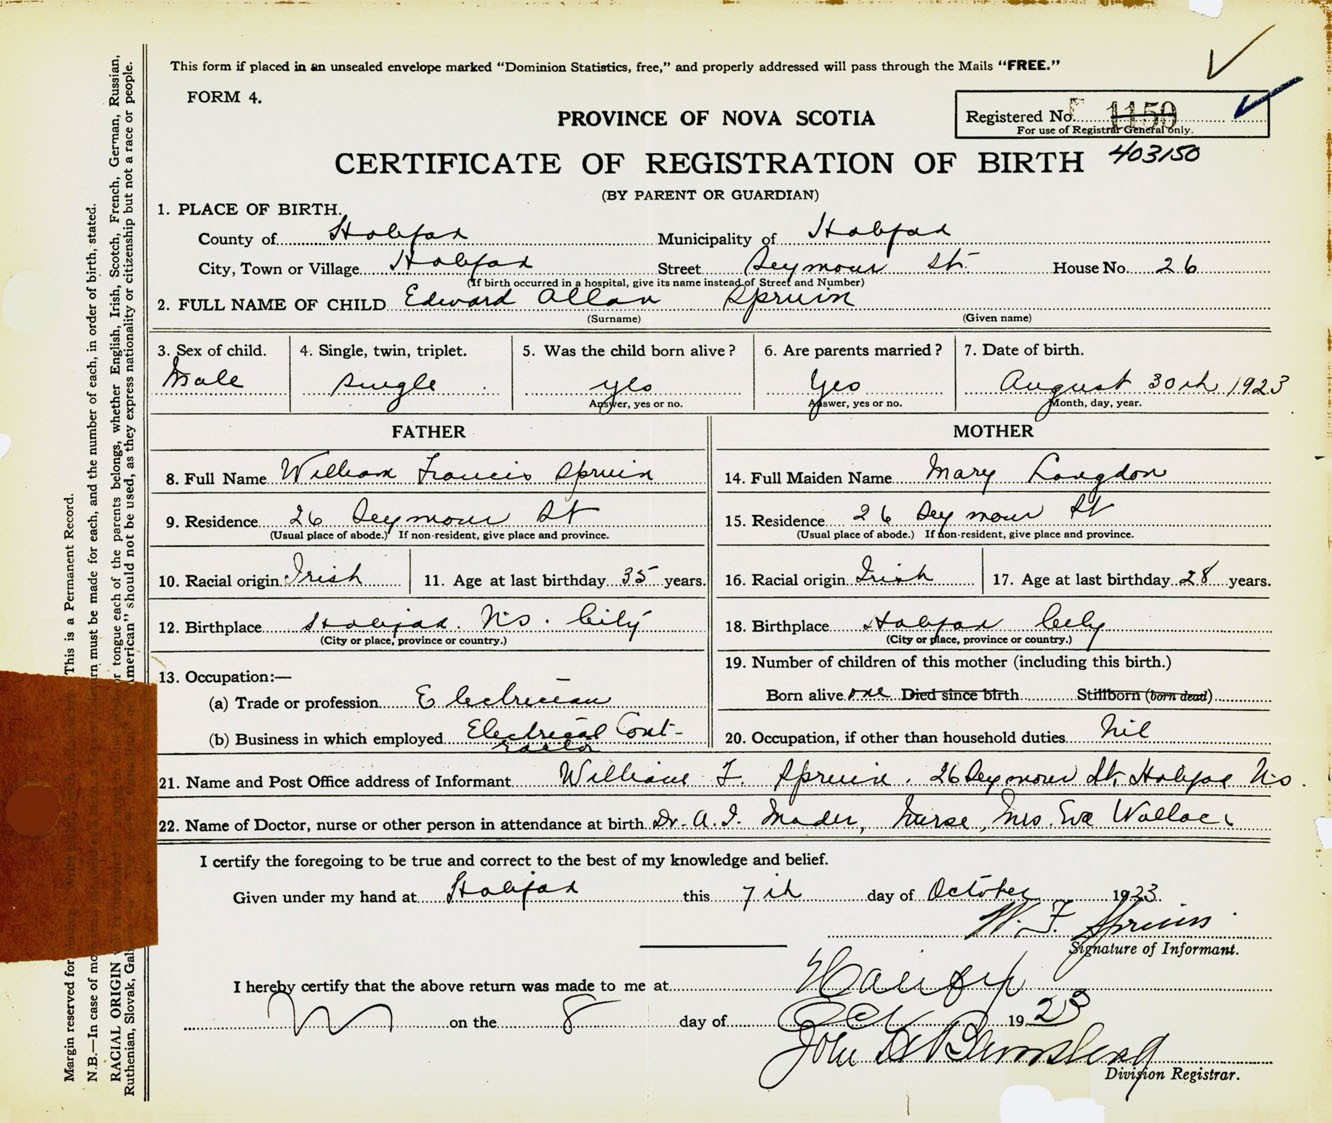 This form if placed in an unsealed envelope marked "Dominion Statistics, free," and properly addressed will pass through the Mails "FREE."
FORM 4.
PROVINCE OF NOVA SCOTIA
Registered No. 1159
For use of Registrar General only.
403150
CERTIFICATE OF REGISTRATION OF BIRTH
(BY PARENT OR GUARDIAN)
1. PLACE OF BIRTH.
County of Halifax Municipality of Halifax
City, Town or Village Halifax Street Seymour St. House No. 26
(If birth occurred in a hospital, give its name instead of Street and Number)
2. FULL NAME OF CHILD Edward Allan Spruin
(Surname) (Given name)
3. Sex of child. 4. Single, twin, triplet. 5. Was the child born alive? 6. Are parents married? 7. Date of birth.
Male Single yes Yes August 30th 1923
Answer, yes or no. Answer, yes or no. Month, day, year.
FATHER MOTHER
8. Full Name William Francis Spruin 14. Full Maiden Name Mary Langdon
9. Residence 26 Seymour St 15. Residence 26 Seymour St
(Usual place of abode.) If non-resident, give place and province. (Usual place of abode.) If non-resident, give place and province.
10. Racial origin Irish 11. Age at last birthday 35 years. 16. Racial origin Irish 17. Age at last birthday 28 years.
12. Birthplace Halifax. N.S. City 18. Birthplace Halifax City
(City or place, province or country.) (City or place, province or country.)
19. Number of children of this mother (including this birth.)
13. Occupation:—
(a) Trade or profession Electrician Born alive one Died since birth Stillborn (born dead)
(b) Business in which employed Electrical Cont-
ractor
20. Occupation, if other than household duties Nil
21. Name and Post Office address of Informant William F. Spruin. 26 Seymour St. Halifax N.S.
22. Name of Doctor, nurse or other person in attendance at birth Dr. A. I. Mader, Nurse, Mrs. Eva Wallace
I certify the foregoing to be true and correct to the best of my knowledge and belief.
Given under my hand at Halifax this 7th day of October 1923
W. F. Spruin
Signature of Informant.
I hereby certify that the above return was made to me at Halifax
on the 8 day of Oct 1923
John
Division Registrar.
Margin reserved for This is a Permanent Record.
N.B.—In case of more return must be made for each, and the number of each, in order of birth, stated.
RACIAL ORIGIN or tongue each of the parents belongs, whether English, Irish, Scotch, French, German, Russian,
Ruthenian, Slovak, American" should not be used, as they express nationality or citizenship but not a race or people.